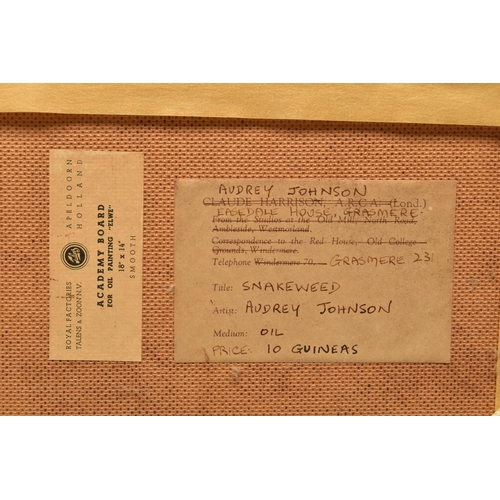 ROYAL FACTORIES
TALENS & ZOON N.V.
APELDOORN
HOLLAND
ACADEMY BOARD
FOR OIL PAINTING "ELWE"
18" x 14"
SMOOTH
AUDREY JOHNSON
CLAUDE HARRISON, A.R.C.A. (Lond.)
EASEDALE HOUSE, GRASMERE.
From the Studios at the Old Mill, North Road,
Ambleside, Westmorland.
Correspondence to the Red House, Old College
Grounds, Windermere.
Telephone Windermere 70. GRASMERE 23
Title: SNAKEWEED
Artist: AUDREY JOHNSON
Medium: OIL
PRICE: 10 GUINEAS